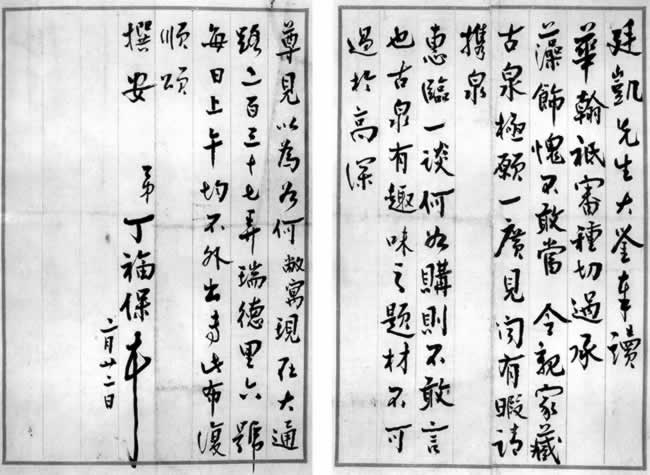 廷凱先生大鉴奉讀
華翰祇審種切過承
藻飾愧不敢當 令親家藏
古泉極願一廣見聞有暇請
携泉
惠臨一談何如購則不敢言
也古泉有趣味之題材不可
過於高深
尊見以為如何敝寓現在大通
路二百三十七弄瑞德里六號
每日上午均不外出專此布復
順頌
撰安
弟丁福保
月廿二日